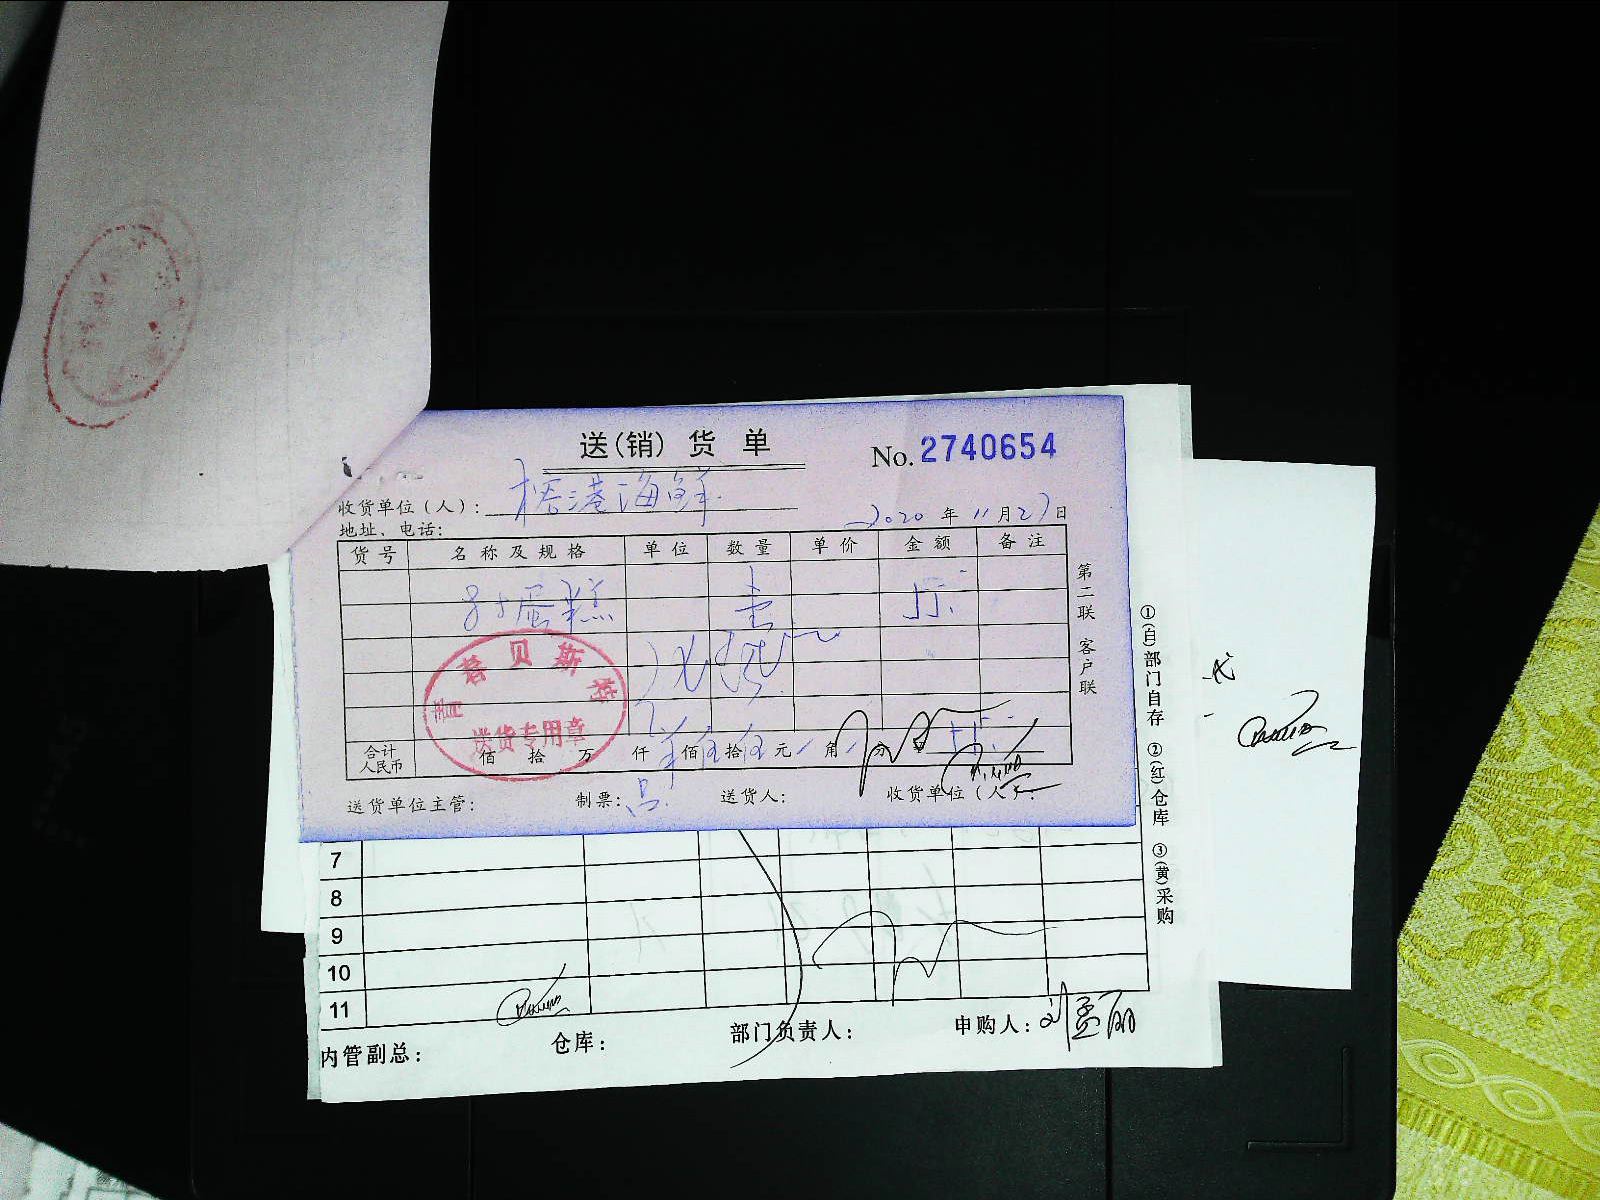 送(销)货单
No. 2740654
收货单位(人): 港海鲜
地址、电话:
2020年11月27日
货号 名称及规格 单位 数量 单价 金额 备注
8寸蛋糕 壹
普贝斯特
送货专用章
合计人民币 佰 拾 万 仟 佰 拾 元 角 分
送货单位主管: 制票: 吕 送货人: 收货单位(人):
第二联 客户联
①(白)部门自存 ②(红)仓库 ③(黄)采购
7
8
9
10
11
内管副总: 仓库: 部门负责人: 申购人: 刘孟丽